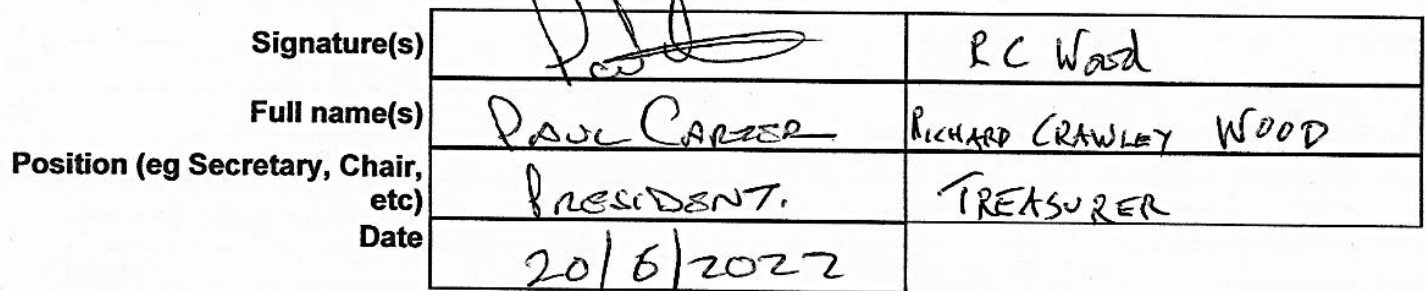 Signature(s) R C Wood
Full name(s) PAUL CARTER RICHARD CRAWLEY WOOD
Position (eg Secretary, Chair,
etc) PRESIDENT. TREASURER
Date 20/6/2022